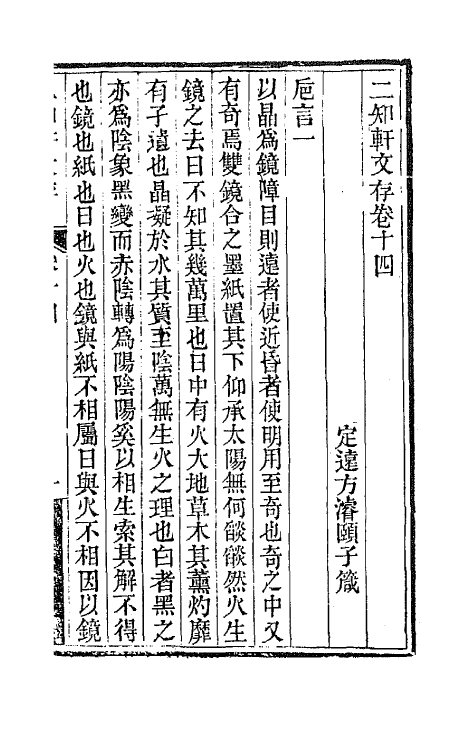 二知軒文存卷十四
定遠方濬頤子箴
卮言一
以晶爲鏡障目則遠者使近昏者使明用至奇也奇之中又
有奇焉雙鏡合之墨紙置其下仰承太陽無何燄燄然火生
鏡之去日不知其幾萬里也日中有火大地草木其薰灼靡
有孑遺也晶凝於水其質至陰萬無生火之理也白者黑之
亦爲陰象黑變而赤陰轉爲陽陰陽奚以相生索其解不得
也鏡也紙也日也火也鏡與紙不相屬日與火不相因以鏡